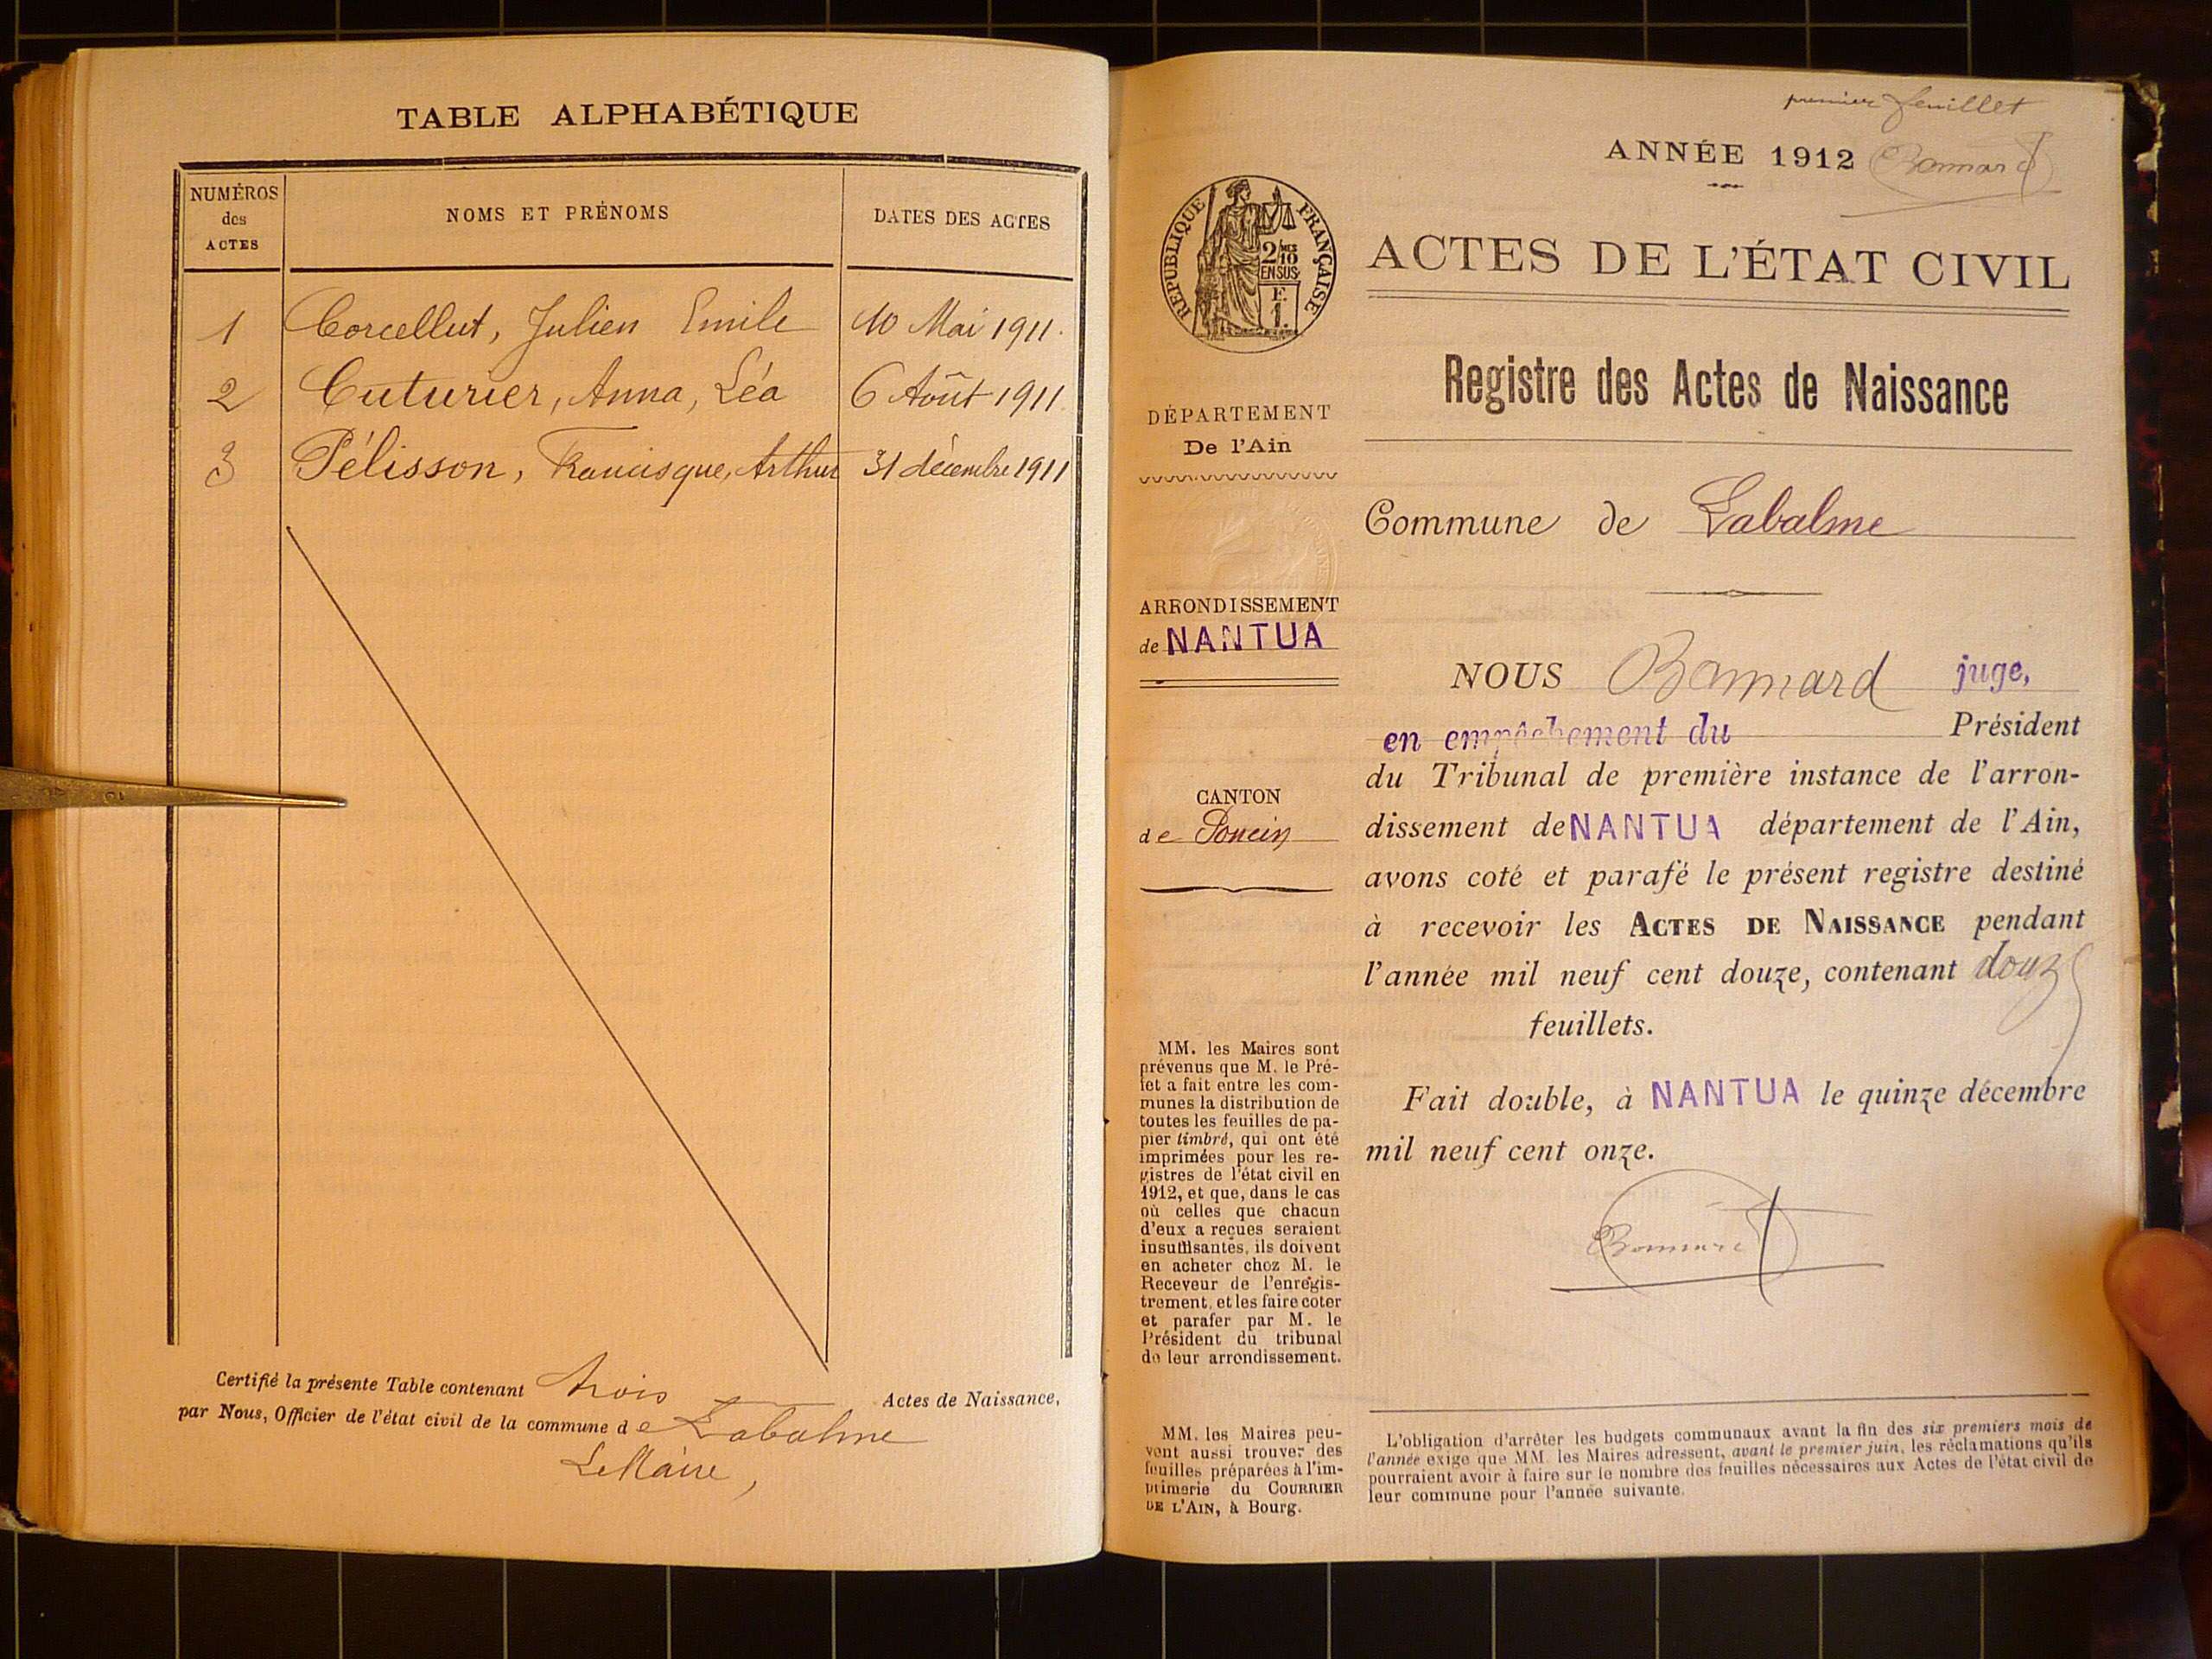 TABLE ALPHABÉTIQUE
NUMÉROS
des
ACTES
NOMS ET PRÉNOMS
DATES DES ACTES
1 Corcellut, Julien Emile 10 Mai 1911.
2 Cuturier, Anna, Léa 6 Août 1911.
3 Pélisson, Francisque, Arthur 31 décembre 1911
Certifié la présente Table contenant trois Actes de Naissance,
par Nous, Officier de l'état civil de la commune de Labalme
Le Maire,
premier feuillet
ANNÉE 1912 Bonnard
RÉPUBLIQUE FRANÇAISE
2/10 MES
EN SUS
F.
1.
ACTES DE L'ÉTAT CIVIL
Registre des Actes de Naissance
DÉPARTEMENT
De l'Ain
Commune de Labalme
ARRONDISSEMENT
de NANTUA
CANTON
de Poncin
NOUS Bonnard juge,
en empêchement du Président
du Tribunal de première instance de l'arron-
dissement de NANTUA département de l'Ain,
avons coté et parafé le présent registre destiné
à recevoir les ACTES DE NAISSANCE pendant
l'année mil neuf cent douze, contenant douze
feuillets.
Fait double, à NANTUA le quinze décembre
mil neuf cent onze.
Bonnard
MM. les Maires sont
prévenus que M. le Pré-
fet a fait entre les com-
munes la distribution de
toutes les feuilles de pa-
pier timbré, qui ont été
imprimées pour les re-
gistres de l'état civil en
1912, et que, dans le cas
où celles que chacun
d'eux a reçues seraient
insuffisantes, ils doivent
en acheter chez M. le
Receveur de l'enregis-
trement, et les faire coter
et parafer par M. le
Président du tribunal
de leur arrondissement.
MM. les Maires peu-
vent aussi trouver des
feuilles préparées à l'im-
primerie du COURRIER
DE L'AIN, à Bourg.
L'obligation d'arrêter les budgets communaux avant la fin des six premiers mois de
l'année exige que MM. les Maires adressent, avant le premier juin, les réclamations qu'ils
pourraient avoir à faire sur le nombre des feuilles nécessaires aux Actes de l'état civil de
leur commune pour l'année suivante.